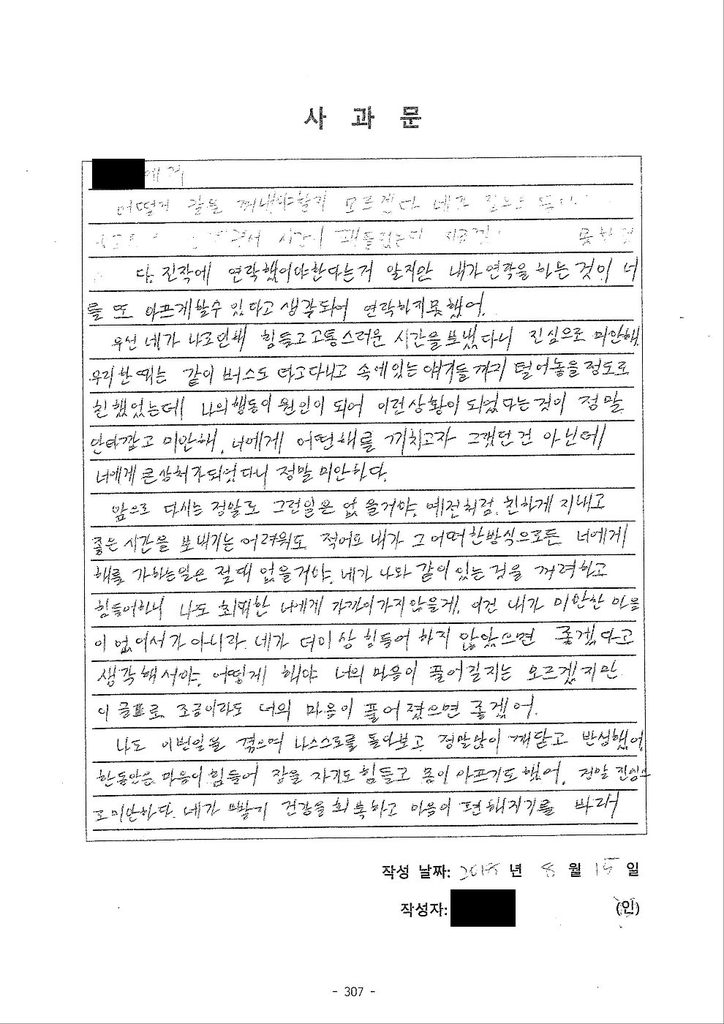 사 과 문
에게
어떻게 말을 꺼내야할지 모르겠다
시간이
더 진작에 연락했어야한다는거 알지만 내가 연락을 하는 것이 너
를 또 아프게할수 있다고 생각되어 연락하지못했어.
우선 네가 나로인해 힘들고고통스러운 시간을 보냈다니 진심으로 미안해
우리 한때는 같이 버스도 타고다니고 속에있는 얘기들까지 털어놓을 정도로
친했었는데 나의행동이 원인이 되어 이런상황이 되었다는것이 정말
안타깝고 미안해. 너에게 어떤해를 끼치고자 그랬던건 아닌데
너에게 큰상처가되었다니 정말 미안하다.
앞으로 다시는 정말로 그런일은 없을거야. 예전처럼 친하게 지내고
좋은 시간을 보내기는 어려워도 적어도 내가 그어떠한방식으로든 너에게
해를 가하는일은 절때 없을거야. 네가 나와 같이있는 것을 꺼려하고
힘들어하니 나도 최대한 너에게 가까이가지않을게. 이건 내가 미안한 마음
이 없어서가 아니라 네가 더이상 힘들어 하지 않았으면 좋겠다고
생각해서야. 어떻게 해야 너의 마음이 풀어질지는 모르겠지만
이 글로 조금이라도 너의 마음이 풀어졌으면 좋겠어.
나도 이번일을 겪으며 나스스로를 돌아보고 정말많이 깨닫고 반성했어
한동안은 마음이 힘들어 잠을 자기도 힘들고 몸이 아프기도했어. 정말 진심으
로미안하다. 네가 빨리 건강을 회복하고 마음이 편해지기를 바래
작성 날짜: 2018 년 8 월 15 일
작성자: (인)
- 307 -